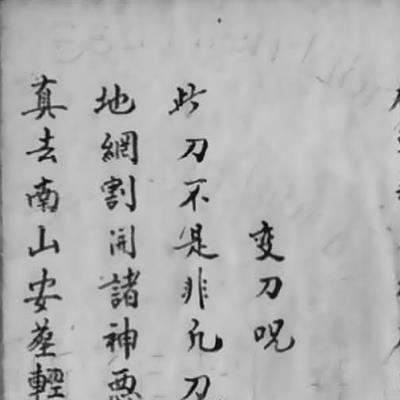 变刀呪
此刀不是非凡刀
地網割開諸神恶
真去南山安墓輕